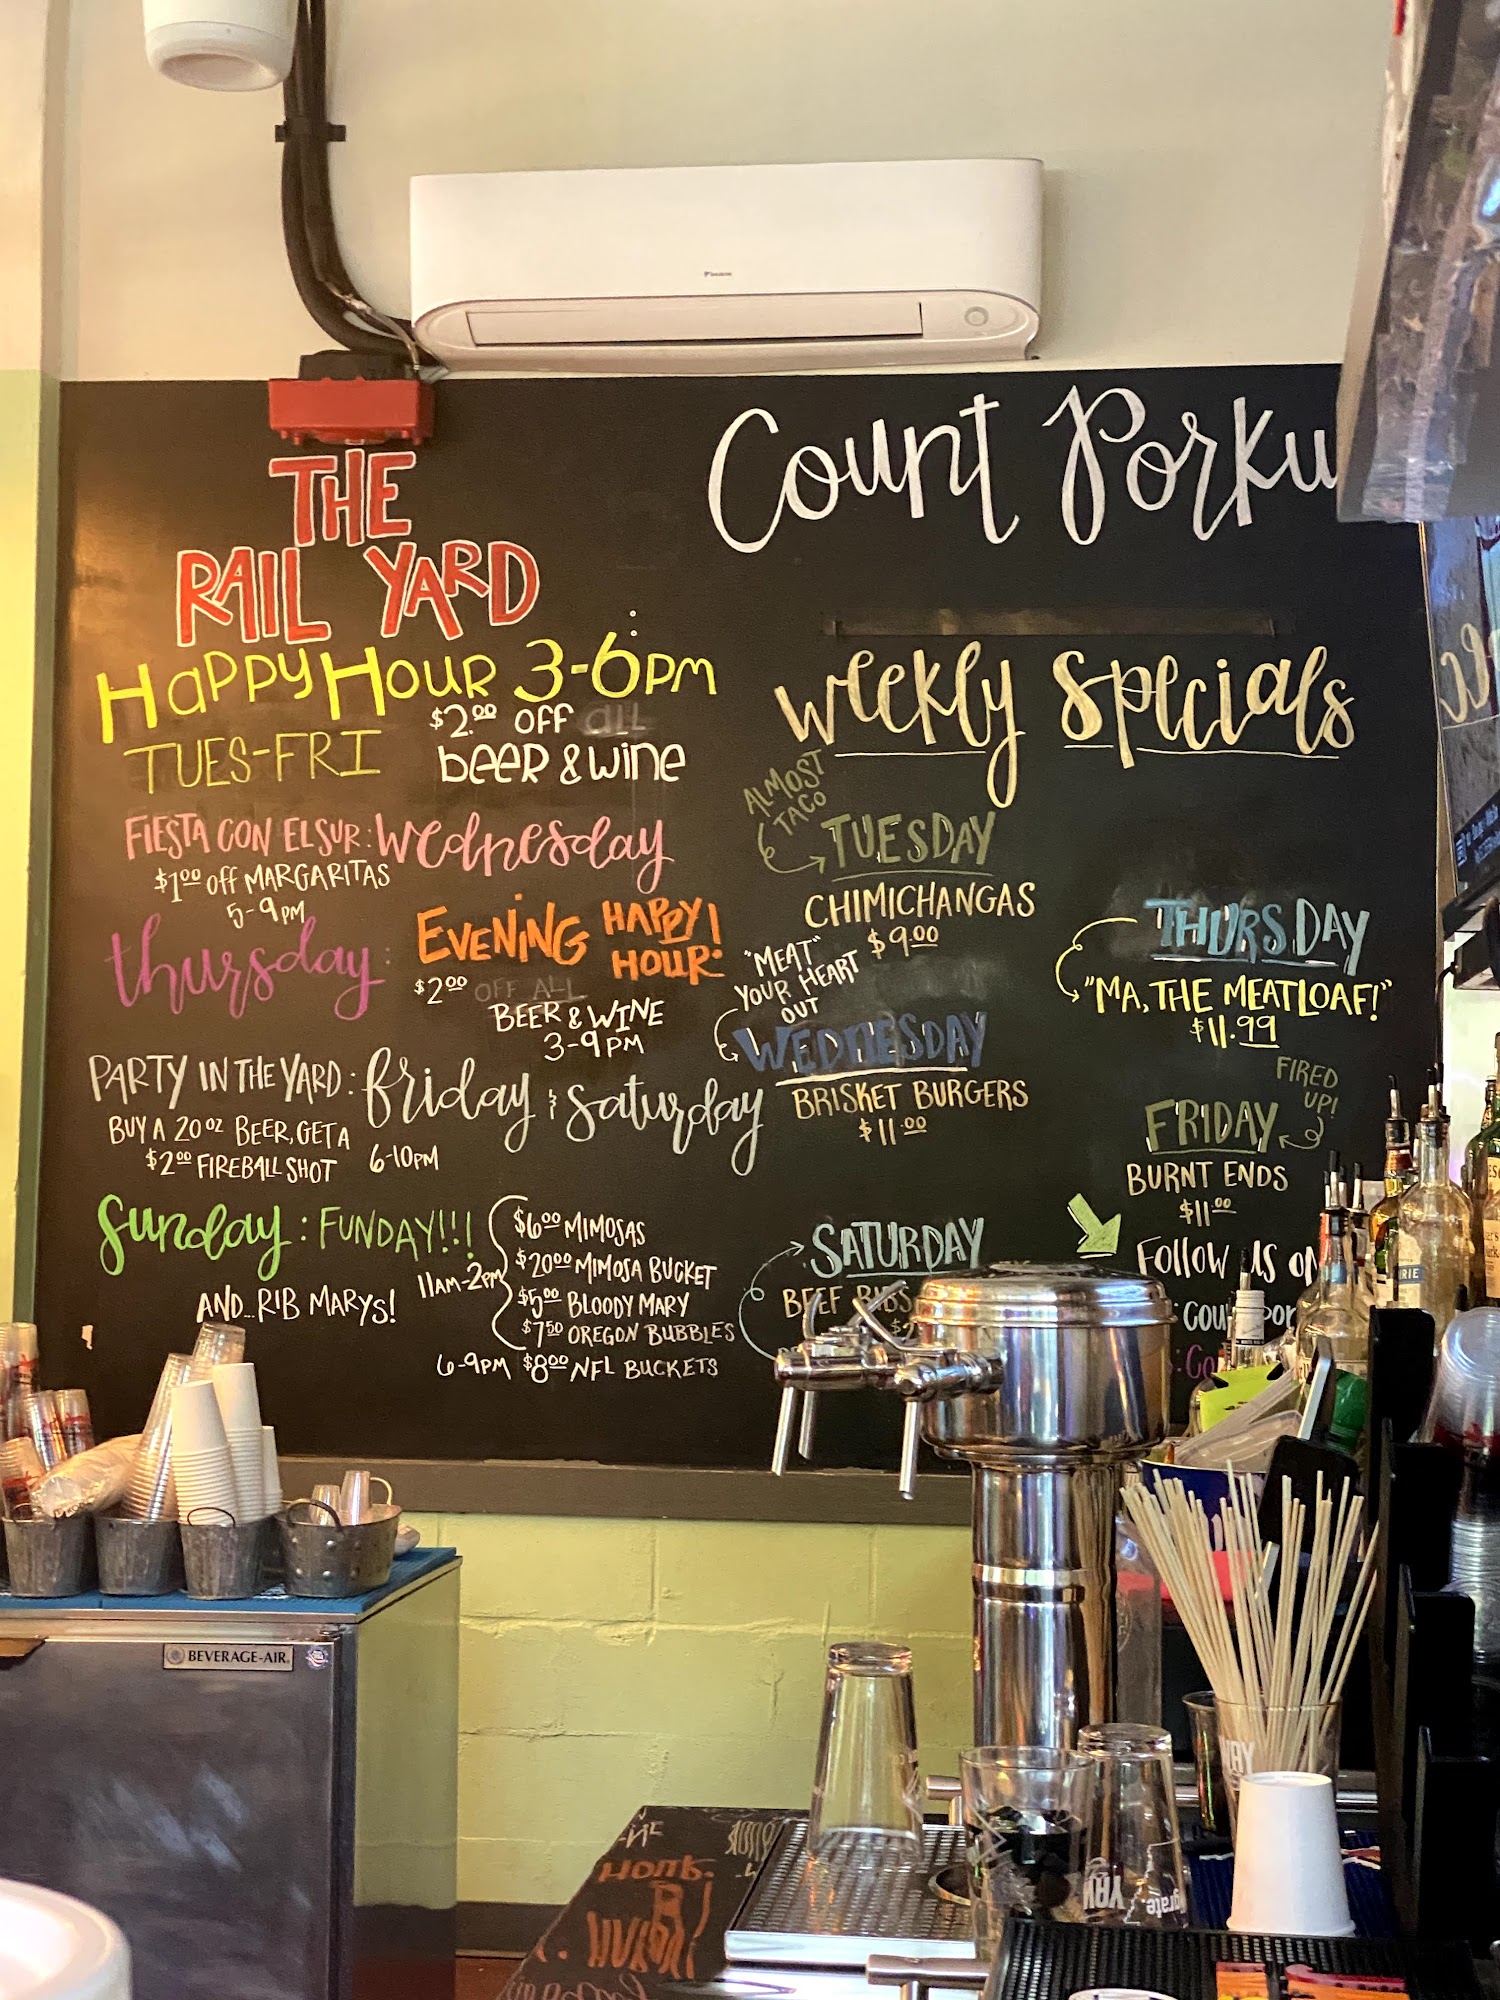 THE
RAIL YARD
HAPPY HOUR 3-6PM
TUES-FRI
$2.00 OFF ALL
BEER & WINE
FIESTA CON EL SUR: Wednesday
$1.00 off MARGARITAS
5-9PM
thursday:
EVENING HAPPY HOUR!
$2.00 OFF ALL
BEER & WINE
3-9PM
PARTY IN THE YARD: friday & saturday
BUY A 20oz BEER, GET A
$2.00 FIREBALL SHOT
6-10PM
Sunday: FUNDAY!!!
AND...RIB MARYS!
11AM-2PM
$6.00 MIMOSAS
$20.00 MIMOSA BUCKET
$5.00 BLOODY MARY
$7.50 OREGON BUBBLES
6-9PM $8.00 NFL BUCKETS
Count Porku
Weekly Specials
ALMOST
TACO
TUESDAY
CHIMICHANGAS
$9.00
"MEAT"
YOUR HEART
OUT
WEDNESDAY
BRISKET BURGERS
$11.00
THURSDAY
"MA, THE MEATLOAF!"
$11.99
FIRED
UP!
FRIDAY
BURNT ENDS
$11.00
SATURDAY
BEEF RIBS
FOLLOW US ON
DAIKIN
BEVERAGE-AIR
YAY
YAY